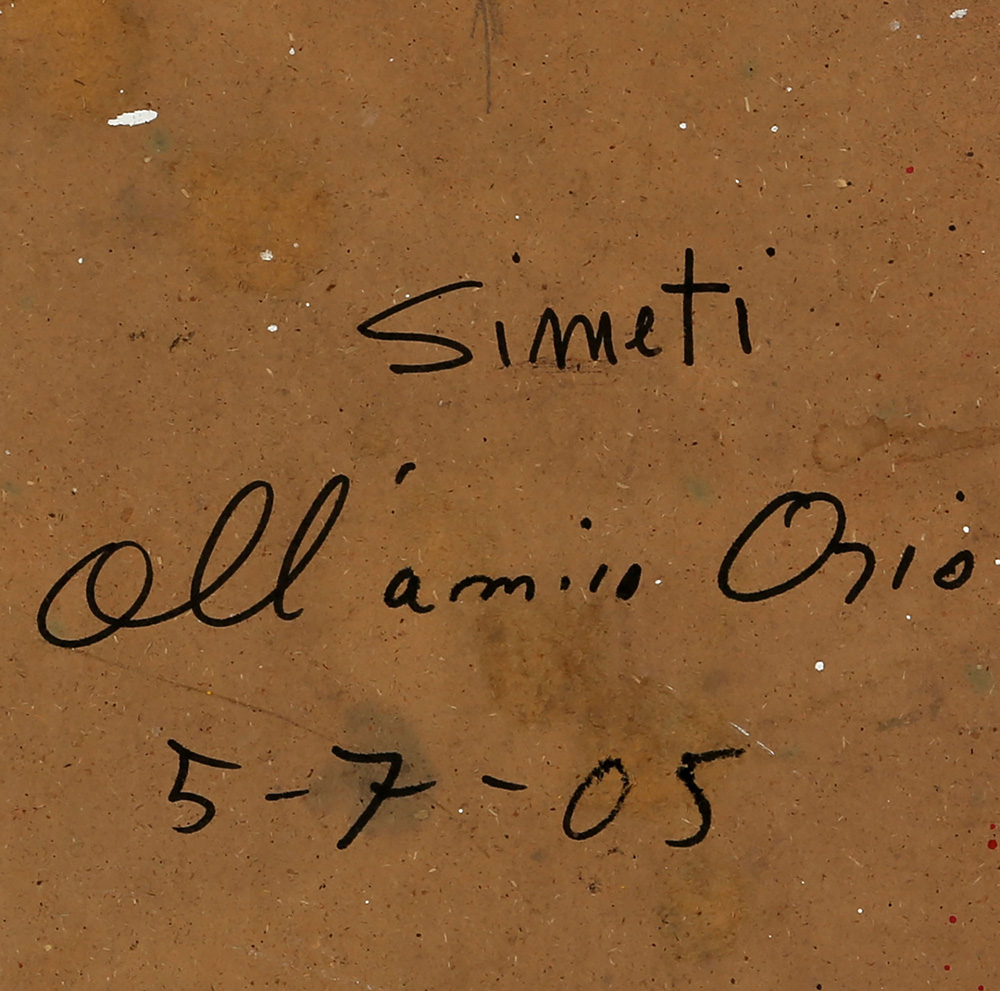 Simeti
All'amico Orio
5-7-05